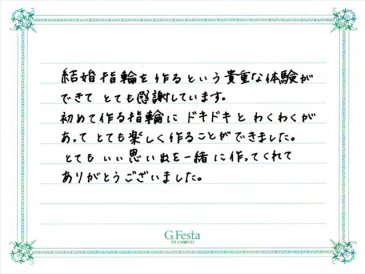 結婚指輪を作るという貴重な体験が
できて とても感謝しています。
初めて作る指輪に ドキドキと わくわくが
あって とても楽しく作ることができました。
とても いい思い出を一緒に作ってくれて
ありがとうございました。
G.Festa
DIAMOND